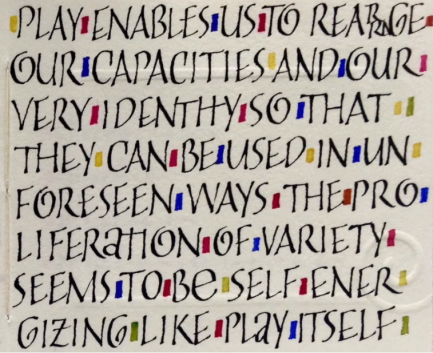 PLAY ENABLES US TO REARRANGE
OUR CAPACITIES AND OUR
VERY IDENTITY SO THAT
THEY CAN BE USED IN UN
FORESEEN WAYS THE PRO
LIFERATION OF VARIETY
SEEMS TO BE SELF ENER
GIZING LIKE PLAY ITSELF